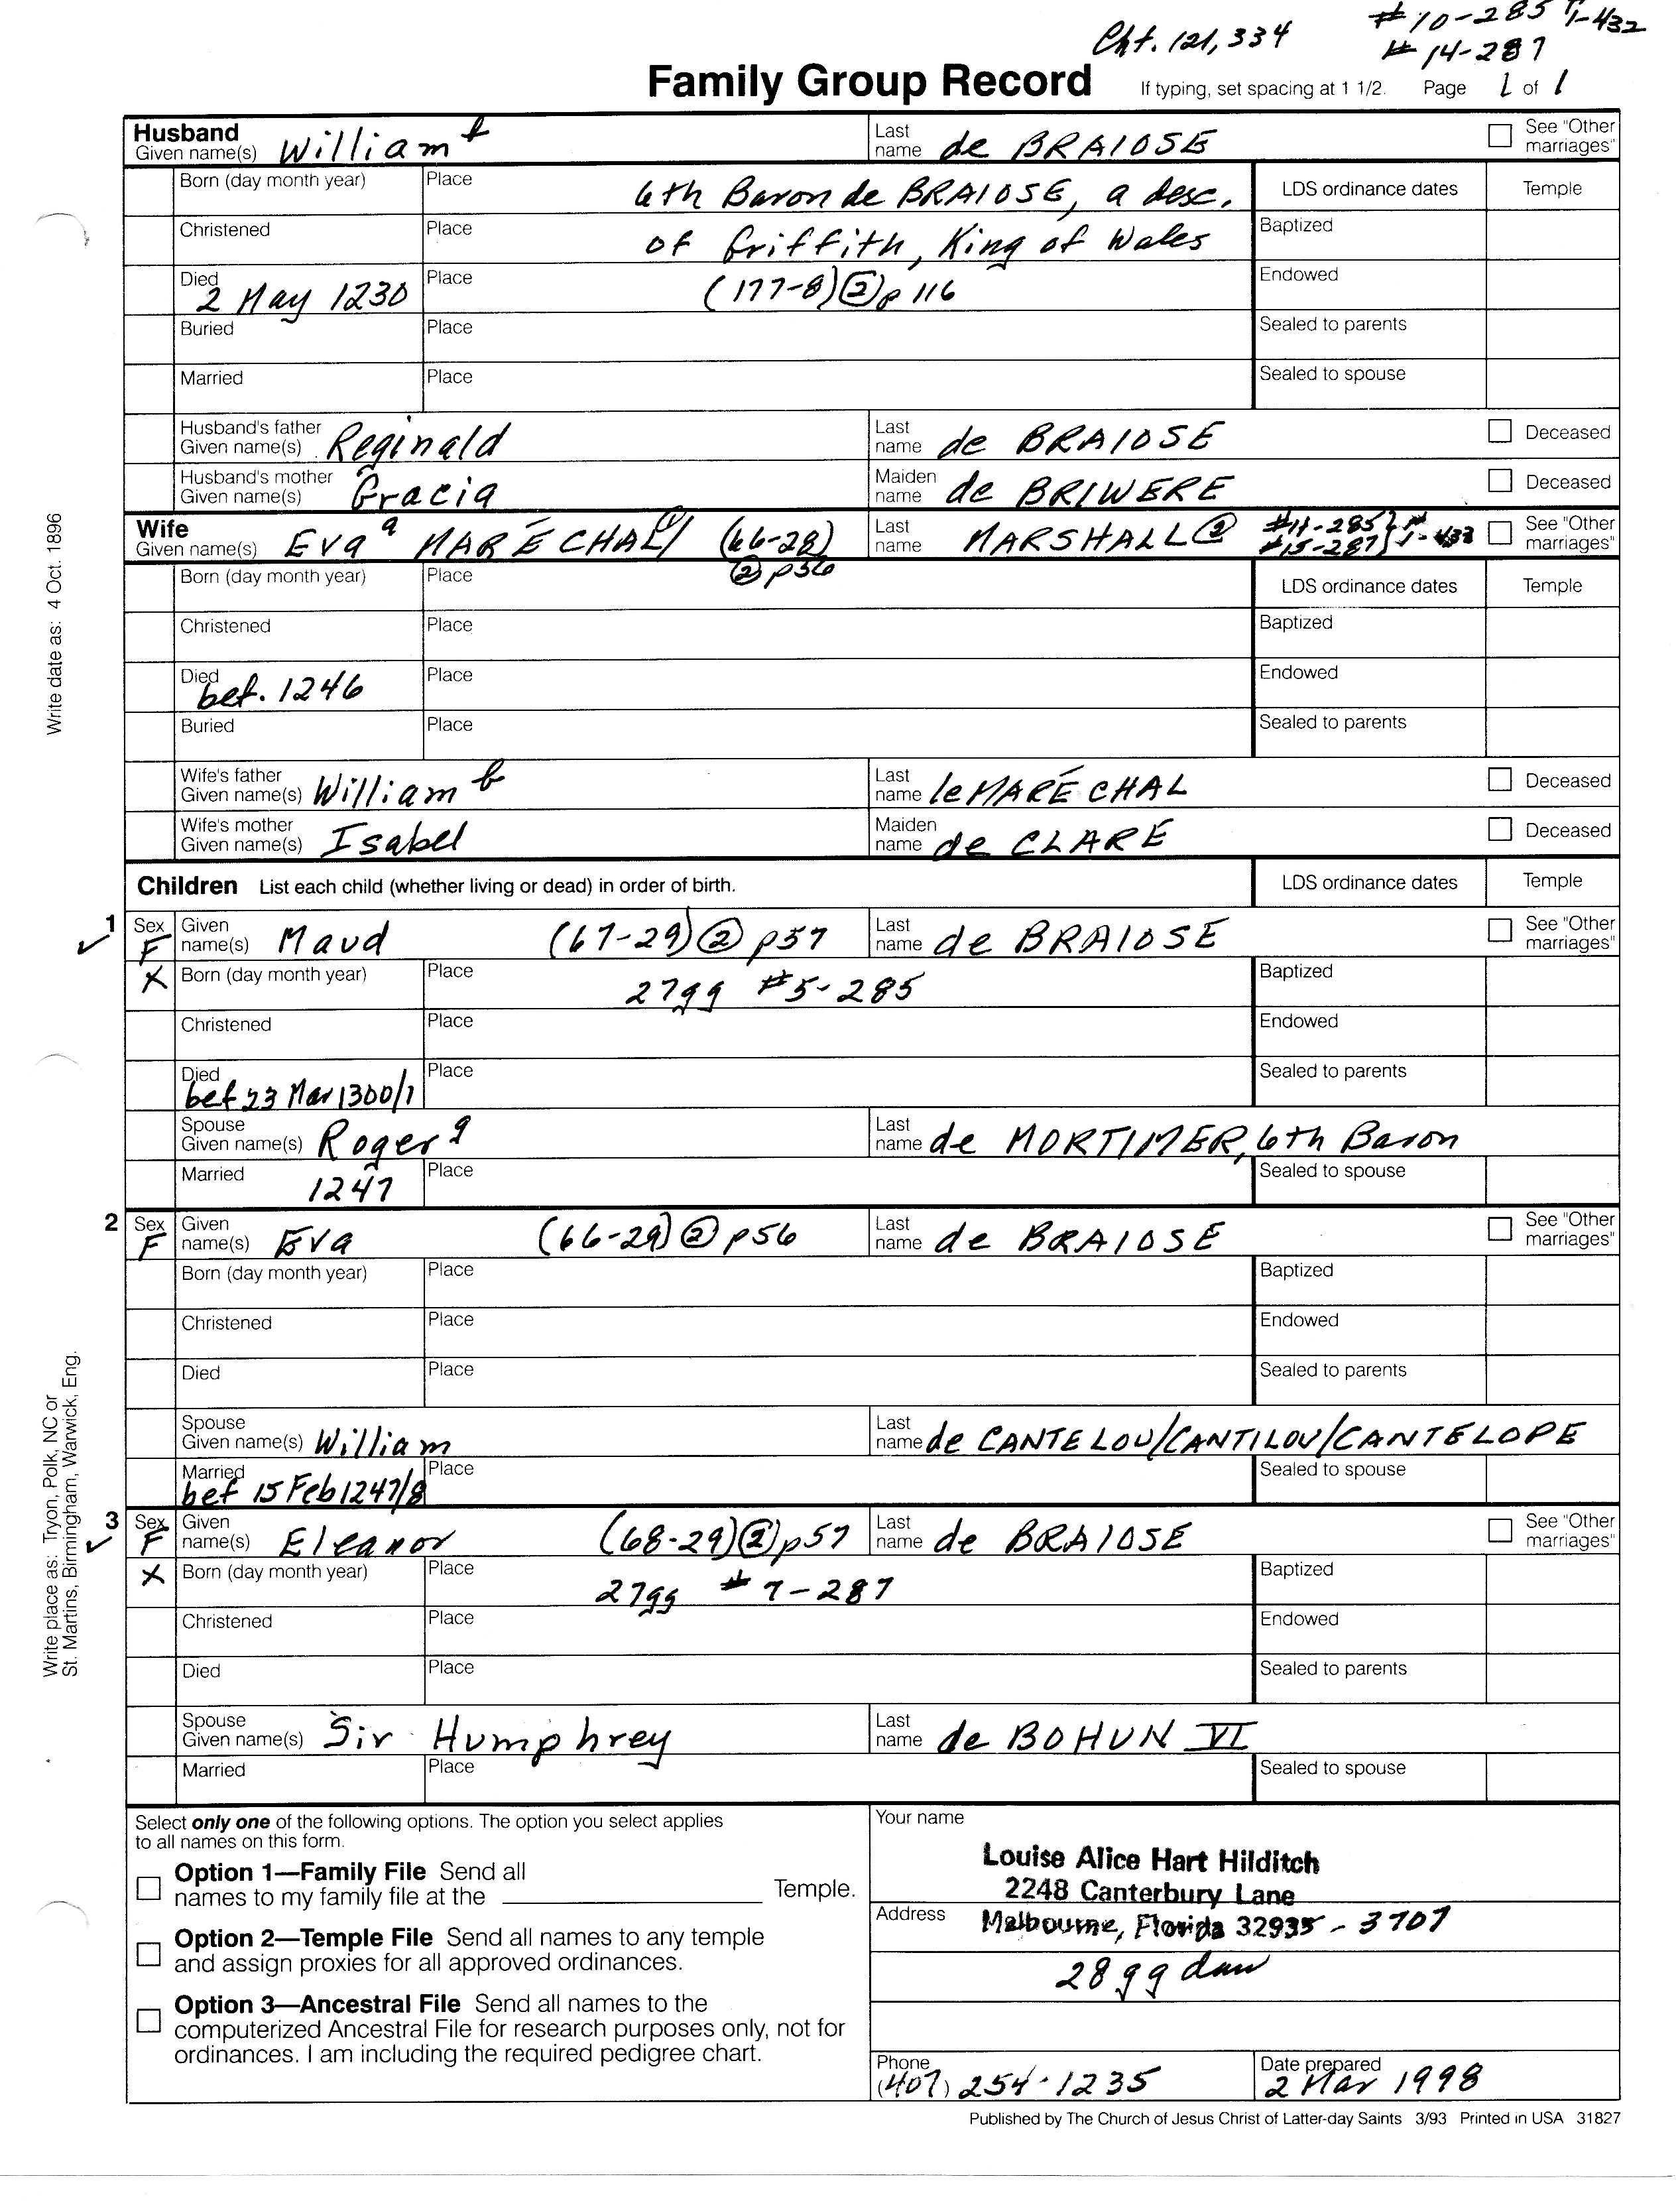 Cht. 121, 334 #10-285 1-432
#14-287
Family Group Record If typing, set spacing at 1 1/2. Page 1 of 1
Husband
Given name(s) William b Last name de BRAIOSE See "Other marriages"
Born (day month year) Place 6th Baron de BRAIOSE, a desc. LDS ordinance dates Temple
Christened Place of Griffith, King of Wales Baptized
Died 2 May 1230 Place (177-8) ② p 116 Endowed
Buried Place Sealed to parents
Married Place Sealed to spouse
Husband's father Given name(s) Reginald Last name de BRAIOSE Deceased
Husband's mother Given name(s) Gracia Maiden name de BRIWERE Deceased
Wife
Given name(s) Eva a MARÉCHAL (66-28) Last name MARSHALL② #11-285 } #15-287 } 1-433 See "Other marriages"
Born (day month year) Place ② p56 LDS ordinance dates Temple
Christened Place Baptized
Died bef. 1246 Place Endowed
Buried Place Sealed to parents
Wife's father Given name(s) William b Last name le MARÉCHAL Deceased
Wife's mother Given name(s) Isabel Maiden name de CLARE Deceased
Children List each child (whether living or dead) in order of birth. LDS ordinance dates Temple
1 Sex F Given name(s) Maud (67-29) ② p57 Last name de BRAIOSE See "Other marriages"
X Born (day month year) Place 27gg #5-285 Baptized
Christened Place Endowed
Died bef 23 Mar 1300/1 Place Sealed to parents
Spouse Given name(s) Roger a Last name de MORTIMER, 6th Baron
Married 1247 Place Sealed to spouse
2 Sex F Given name(s) Eva (66-29) ② p56 Last name de BRAIOSE See "Other marriages"
Born (day month year) Place Baptized
Christened Place Endowed
Died Place Sealed to parents
Spouse Given name(s) William Last name de CANTELOU/CANTILOU/CANTELOPE
Married bef 15 Feb 1247/8 Place Sealed to spouse
3 Sex F Given name(s) Eleanor (68-29) ② p57 Last name de BRAIOSE See "Other marriages"
X Born (day month year) Place 27gg #7-287 Baptized
Christened Place Endowed
Died Place Sealed to parents
Spouse Given name(s) Sir Humphrey Last name de BOHUN VI
Married Place Sealed to spouse
Write date as: 4 Oct. 1896
Write place as: Tryon, Polk, NC or
St. Martins, Birmingham, Warwick, Eng.
Select only one of the following options. The option you select applies
to all names on this form.
Option 1—Family File Send all
names to my family file at the Temple.
Option 2—Temple File Send all names to any temple
and assign proxies for all approved ordinances.
Option 3—Ancestral File Send all names to the
computerized Ancestral File for research purposes only, not for
ordinances. I am including the required pedigree chart.
Your name
Louise Alice Hart Hilditch
2248 Canterbury Lane
Address Melbourne, Florida 32935-3707
28gg dau
Phone (407) 254-1235 Date prepared 2 Mar 1998
Published by The Church of Jesus Christ of Latter-day Saints 3/93 Printed in USA 31827